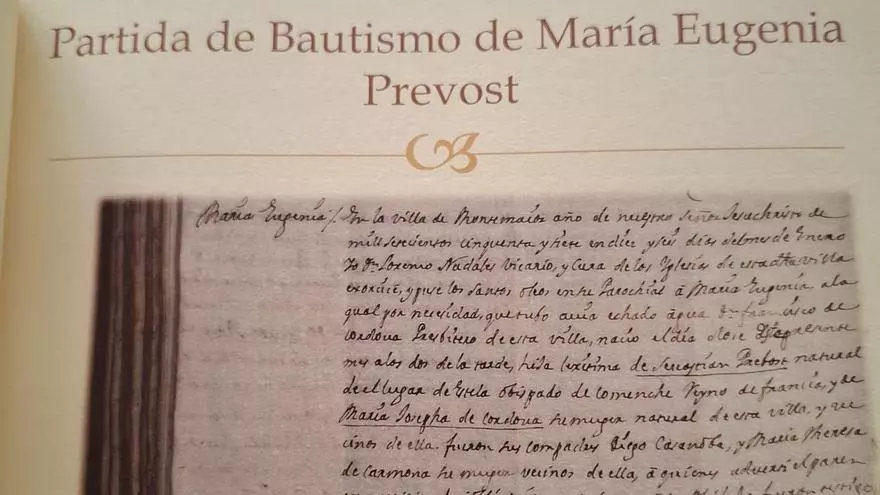 Partida de Bautismo de María Eugenia
Prevost
Maria Eugenia /. En la villa de Montemaior año de nuestro Señor Jesuchristo de
mill setecientos cinquenta y siete en diez y seis dias del mes de Enero
Yo Dn. Lorenzo Nadales Vicario, y Cura de las Yglesias de esta dha villa
exorcicè, y puse los santos oleos en la Parochial à Maria Eugenia a la
qual por necesidad, que tubo avia echado agua Dn. francisco de
cordova Presbitero de esta villa, nacio el dia doze
mes a las dos de la tarde, hija lexitima de Sevastian Prebost natural
de el lugar de Estela obispado de comenche Reyno de francia, y de
Maria Josepha de Cordova su muger natural de esta villa, y ve
cinos de ella. fueron sus compadres Diego Casanoba, y Maria Theresa
de Carmona su muger vecinos de ella, à quienes adverti el paren